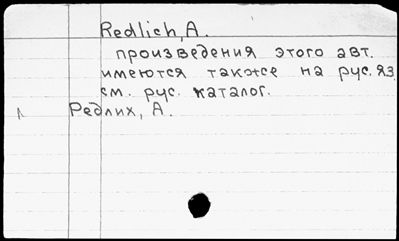 Redlich, A.
произведения этого авт.
имеются также на рус. яз.
см. рус. каталог.
Редлих, А.